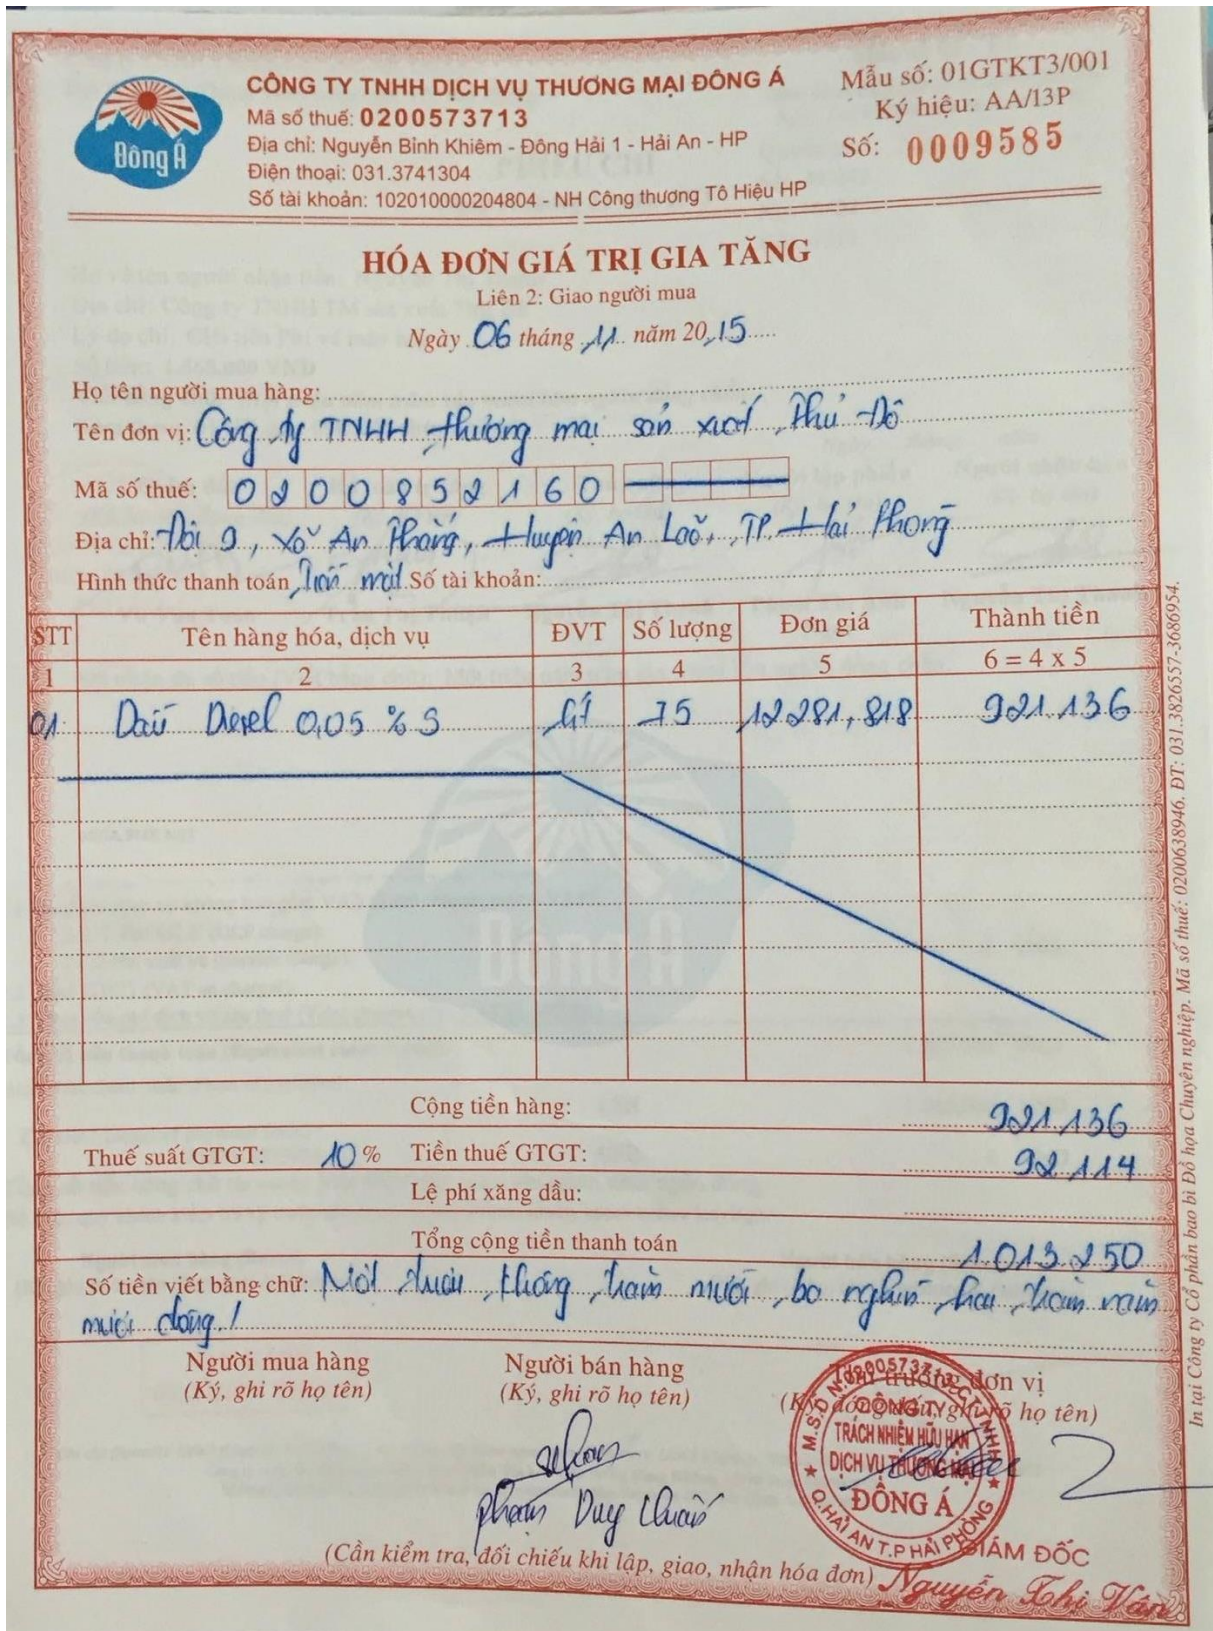 CÔNG TY TNHH DỊCH VỤ THƯƠNG MẠI ĐÔNG Á
Mã số thuế: 0200573713
Địa chỉ: Nguyễn Bỉnh Khiêm - Đông Hải 1 - Hải An - HP
Điện thoại: 031.3741304
Số tài khoản: 102010000204804 - NH Công thương Tô Hiệu HP
Đông Á
Mẫu số: 01GTKT3/001
Ký hiệu: AA/13P
Số: 0009585
HÓA ĐƠN GIÁ TRỊ GIA TĂNG
Liên 2: Giao người mua
Ngày 06 tháng 11 năm 2015
Họ tên người mua hàng:
Tên đơn vị: Công ty TNHH thương mại sản xuất Phú Đô
Mã số thuế: 0200852160
Địa chỉ: Đội 9, Xã An Thắng, Huyện An Lão, TP Hải Phòng
Hình thức thanh toán Tiền mặt Số tài khoản:
STT Tên hàng hóa, dịch vụ ĐVT Số lượng Đơn giá Thành tiền
1 2 3 4 5 6 = 4 x 5
01 Dầu Diesel 0,05 % S lít 75 12281,818 921.136
Đông Á
Cộng tiền hàng: 921.136
Thuế suất GTGT: 10 % Tiền thuế GTGT: 92.114
Lệ phí xăng dầu:
Tổng cộng tiền thanh toán 1.013.250
Số tiền viết bằng chữ: Một triệu, không trăm mười ba nghìn hai trăm năm
mươi đồng!
Người mua hàng Người bán hàng Thủ trưởng đơn vị
(Ký, ghi rõ họ tên) (Ký, ghi rõ họ tên) (Ký, đóng dấu, ghi rõ họ tên)
M.S.D.N:0200573713-C.T.T.N.H.H
CÔNG TY
TRÁCH NHIỆM HỮU HẠN
DỊCH VỤ THƯƠNG MẠI
ĐÔNG Á
Q.HẢI AN T.P HẢI PHÒNG
Phạm Duy
GIÁM ĐỐC
Nguyễn Thị Vân
(Cần kiểm tra, đối chiếu khi lập, giao, nhận hóa đơn)
In tại Công ty Cổ phần bao bì Đồ họa Chuyên nghiệp. Mã số thuế: 0200638946. ĐT: 031.3826557-3686954.